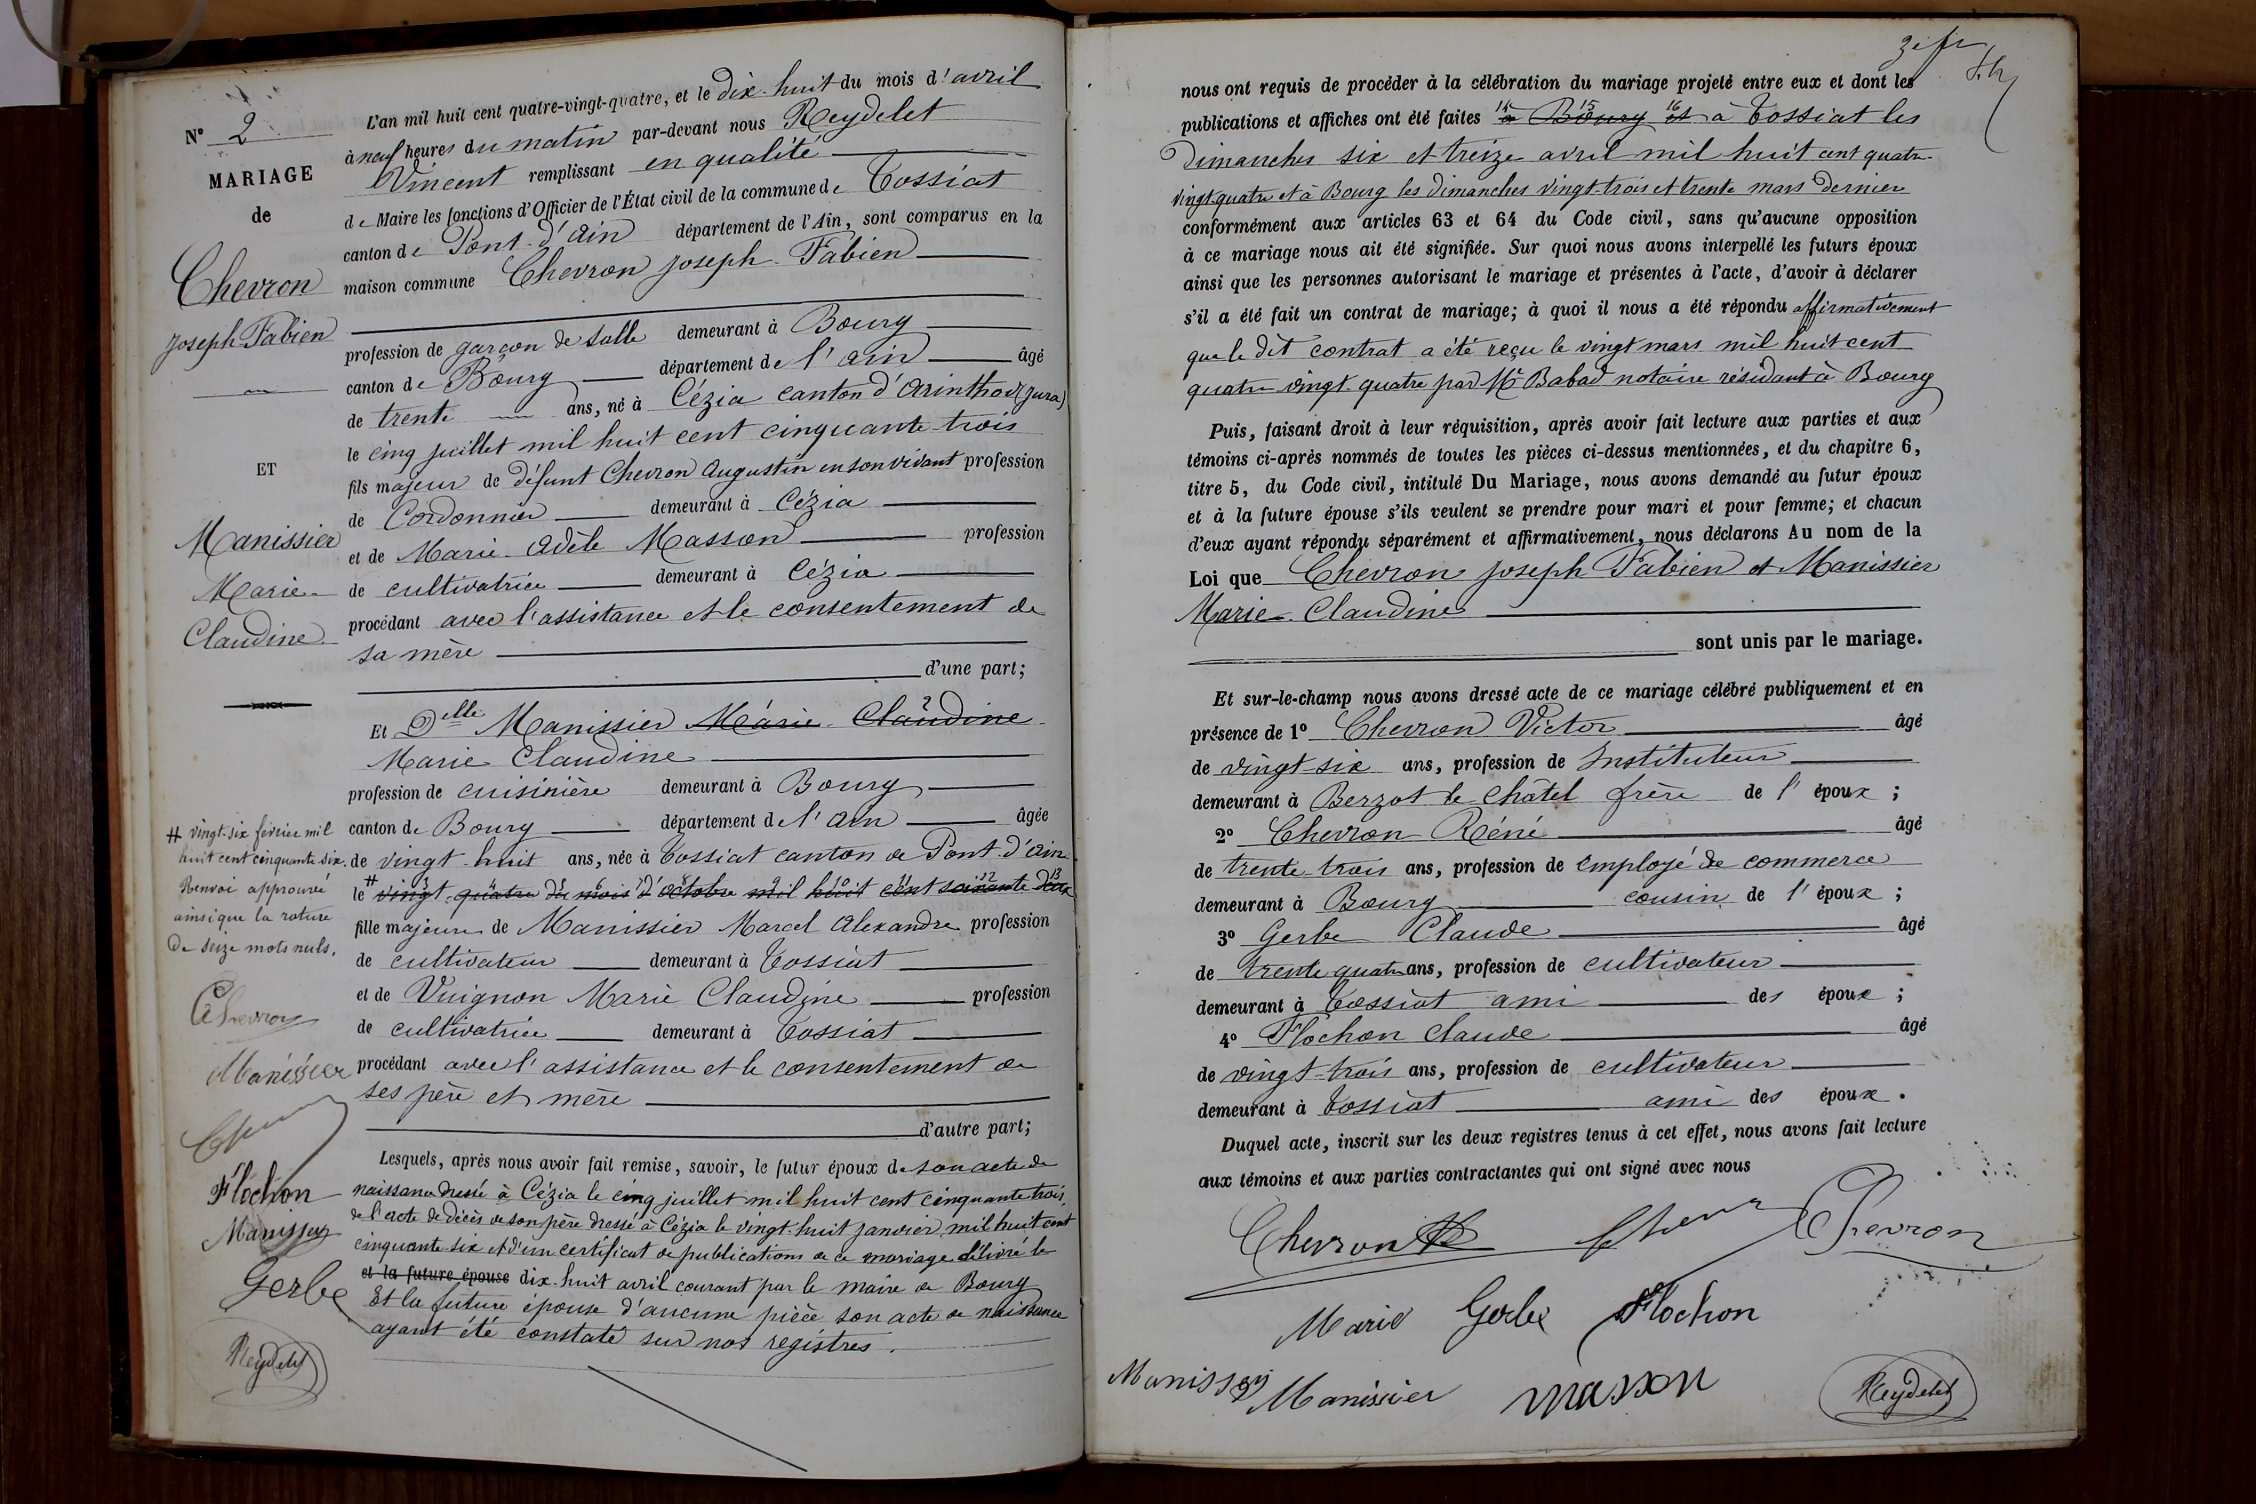 N° 2
MARIAGE
de
Chevron
Joseph Fabien
ET
Manissier
Marie
Claudine
# vingt-six février mil
huit cent cinquante six.
Renvoi approuvé
ainsi que la rature
de seize mots nuls.
Chevron
Manissier
Flochon
Manissier
Gerbe
Reydelet
L'an mil huit cent quatre-vingt-quatre, et le dix-huit du mois d'avril
à neuf heures du matin par-devant nous Reydelet
Vincent remplissant en qualité
de Maire les fonctions d'Officier de l'État civil de la commune de Tossiat
canton de Pont-d'Ain département de l'Ain, sont comparus en la
maison commune Chevron Joseph Fabien
profession de garçon de salle demeurant à Bourg
canton de Bourg département de l'Ain âgé
de trente ans, né à Cézia canton d'Arinthod (Jura)
le cinq juillet mil huit cent cinquante-trois
fils majeur de défunt Chevron Augustin en son vivant profession
de Cordonnier demeurant à Cézia
et de Marie Adèle Masson profession
de cultivatrice demeurant à Cézia
procédant avec l'assistance et le consentement de
sa mère
d'une part;
Et Delle Manissier Marie Claudine
Marie Claudine
profession de cuisinière demeurant à Bourg
canton de Bourg département de l'Ain âgée
de vingt-huit ans, née à Tossiat canton de Pont-d'Ain
le # vingt-quatre du mois d'octobre mil huit cent soixante deux
fille majeure de Manissier Marcel Alexandre profession
de cultivateur demeurant à Tossiat
et de Vuignon Marie Claudine profession
de cultivatrice demeurant à Tossiat
procédant avec l'assistance et le consentement de
ses père et mère
d'autre part;
Lesquels, après nous avoir fait remise, savoir, le futur époux de son acte de
naissance dressé à Cézia le cinq juillet mil huit cent cinquante trois,
de l'acte de décès de son père dressé à Cézia le vingt-huit janvier mil huit cent
cinquante six et d'un certificat de publications de ce mariage délivré le
et la future épouse dix-huit avril courant par le maire de Bourg
Et la future épouse d'aucune pièce son acte de naissance
ayant été constaté sur nos registres.
nous ont requis de procéder à la célébration du mariage projeté entre eux et dont les
publications et affiches ont été faites à Bourg et à Tossiat les
Dimanches six et treize avril mil huit cent quatre-
vingt-quatre et à Bourg les dimanches vingt-trois et trente mars dernier
conformément aux articles 63 et 64 du Code civil, sans qu'aucune opposition
à ce mariage nous ait été signifiée. Sur quoi nous avons interpellé les futurs époux
ainsi que les personnes autorisant le mariage et présentes à l'acte, d'avoir à déclarer
s'il a été fait un contrat de mariage; à quoi il nous a été répondu affirmativement
que le dit contrat a été reçu le vingt mars mil huit cent
quatre-vingt-quatre par Me Babad notaire résidant à Bourg
Puis, faisant droit à leur réquisition, après avoir fait lecture aux parties et aux
témoins ci-après nommés de toutes les pièces ci-dessus mentionnées, et du chapitre 6,
titre 5, du Code civil, intitulé Du Mariage, nous avons demandé au futur époux
et à la future épouse s'ils veulent se prendre pour mari et pour femme; et chacun
d'eux ayant répondu séparément et affirmativement, nous déclarons Au nom de la
Loi que Chevron Joseph Fabien et Manissier
Marie Claudine
sont unis par le mariage.
Et sur-le-champ nous avons dressé acte de ce mariage célébré publiquement et en
présence de 1° Chevron Victor âgé
de vingt-six ans, profession de Instituteur
demeurant à Berzet le Châtel frère de l'époux;
2° Chevron Réné âgé
de trente-trois ans, profession de employé de commerce
demeurant à Bourg cousin de l'époux;
3° Gerbe Claude âgé
de trente quatre ans, profession de cultivateur
demeurant à Tossiat ami des époux;
4° Flochon Claude âgé
de vingt-trois ans, profession de cultivateur
demeurant à Tossiat ami des époux.
Duquel acte, inscrit sur les deux registres tenus à cet effet, nous avons fait lecture
aux témoins et aux parties contractantes qui ont signé avec nous
Chevron Chevron
Marie Gerbe Flochon
Manissier Manissier Masson Reydelet